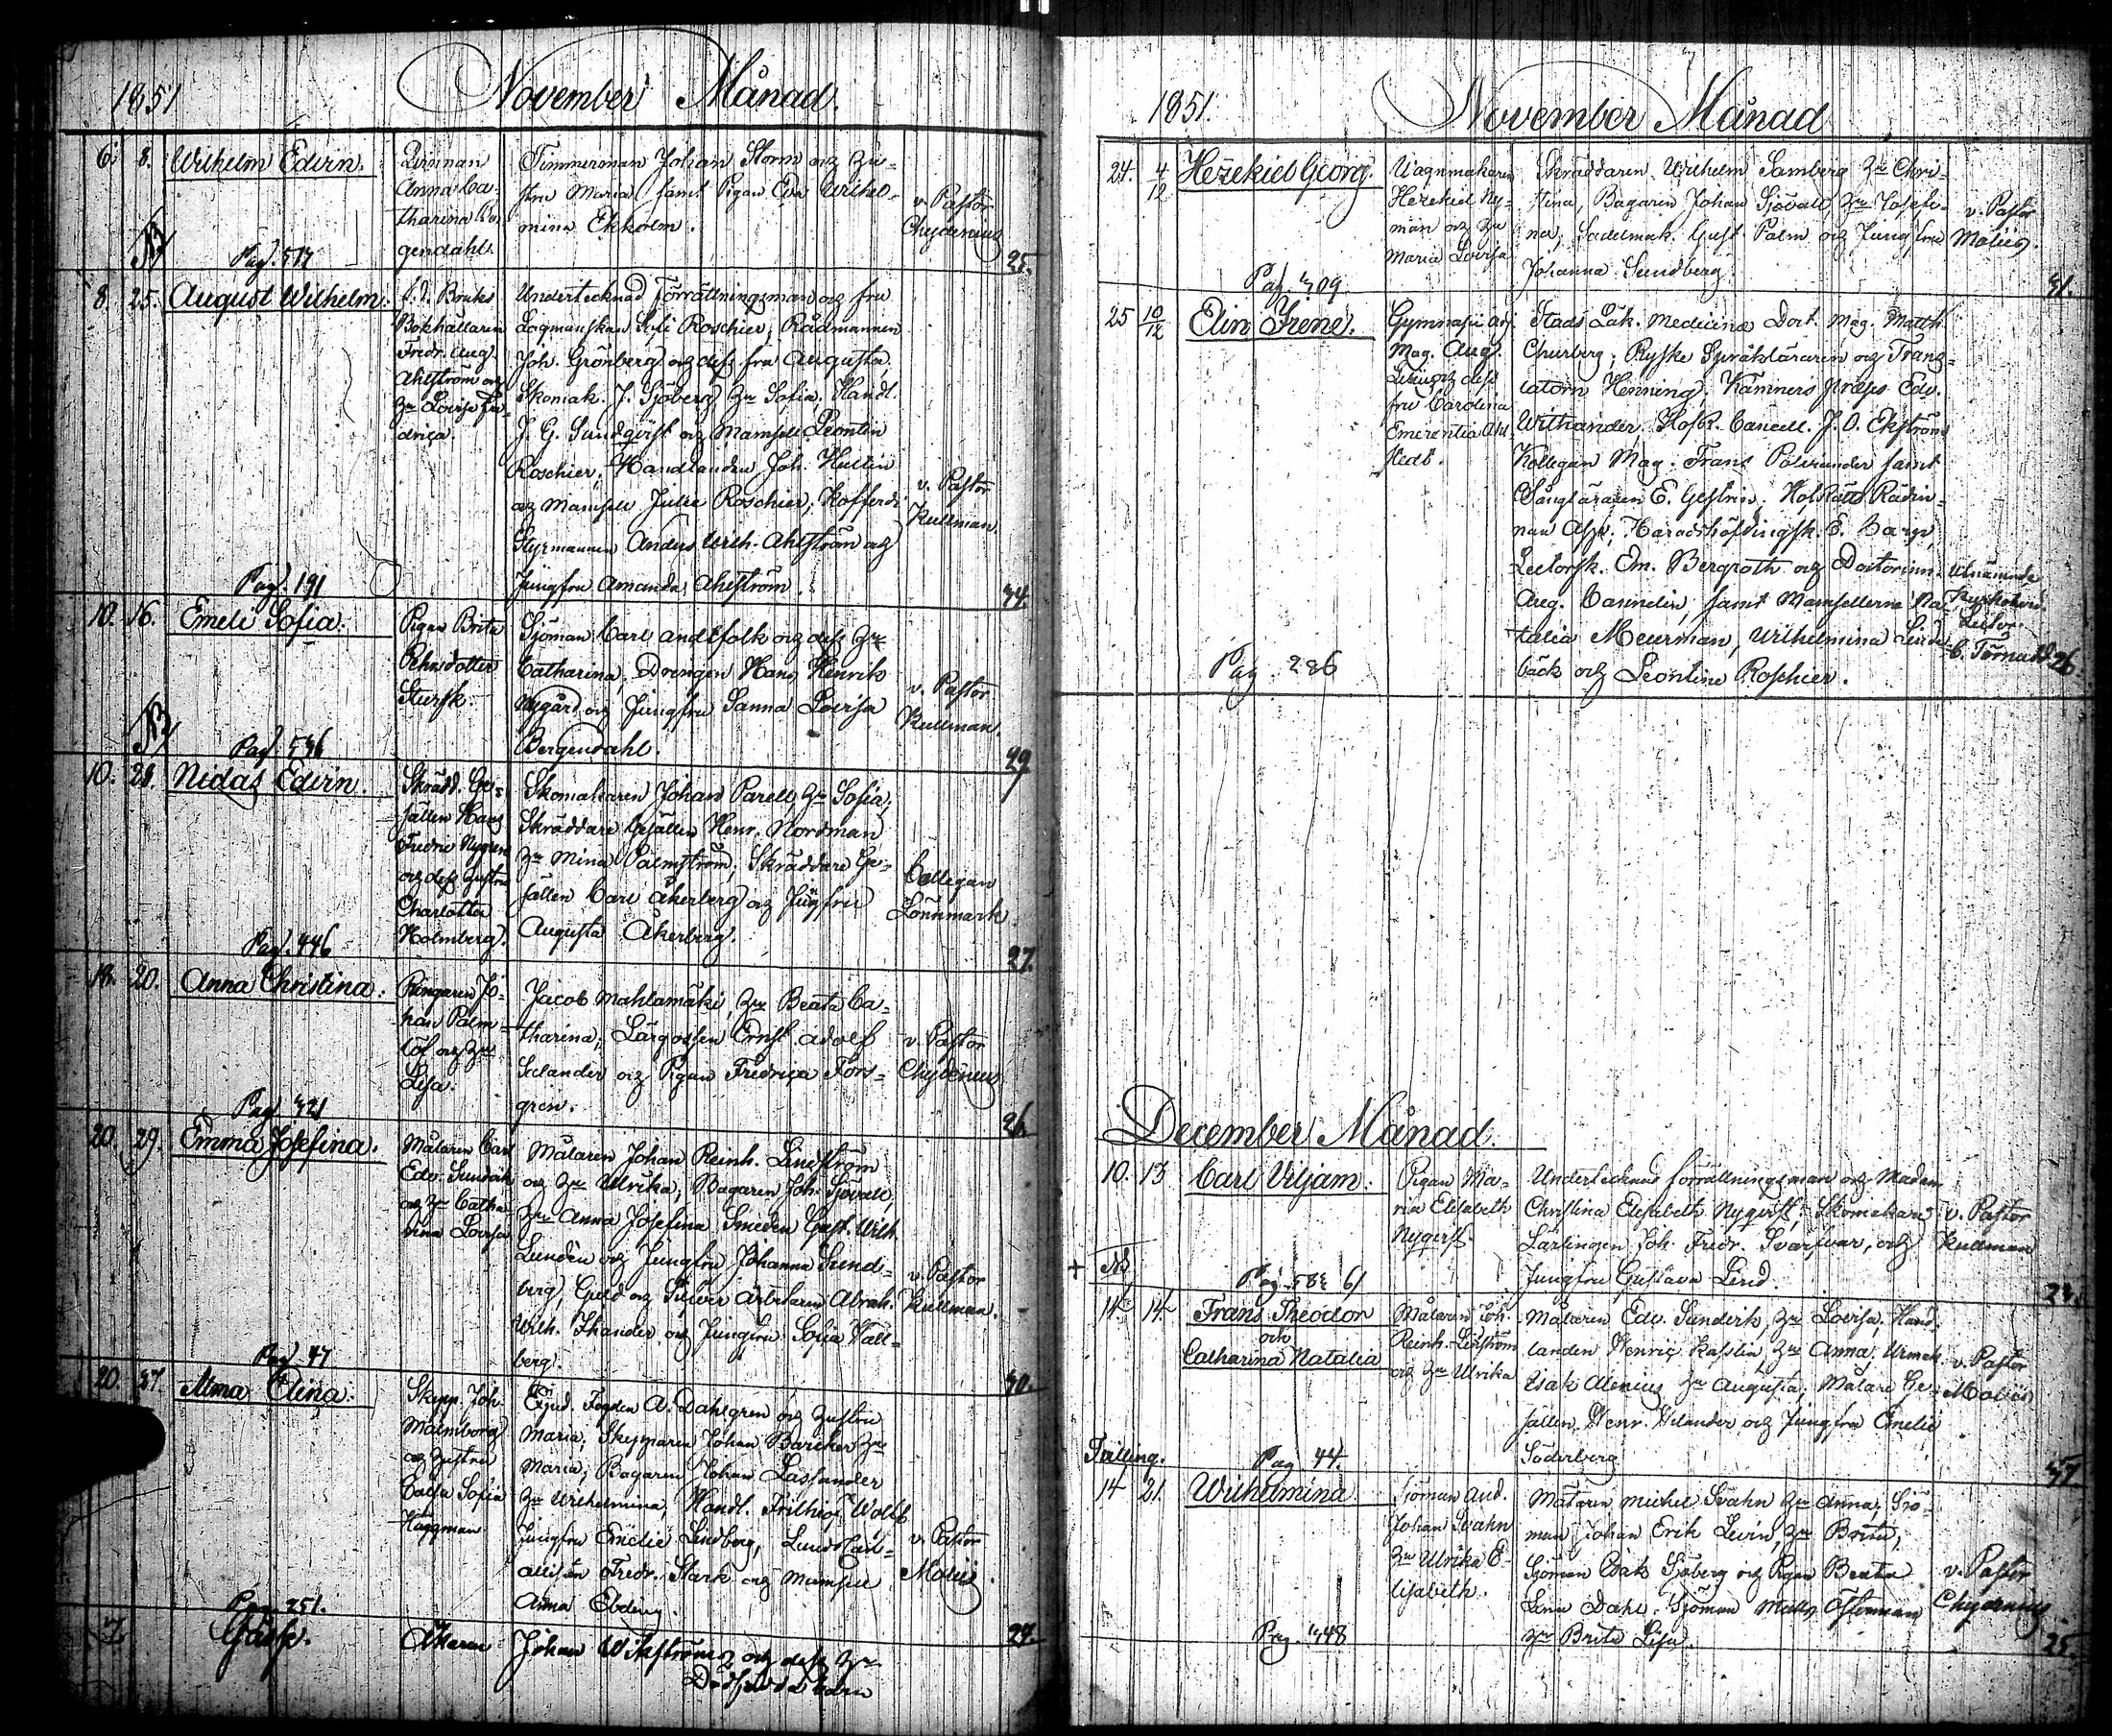 1851 November Månad.
6. 8. Wilhelm Edvin.
Qvinnan
Anna Ca-
tharina
gendahl.
Timmerman Johan Storm och Hu-
stru Maria samt Pigan Eva Wilhel-
mina Ekholm.
v. Pastor
Chydenius
25.
8. 25. August Wilhelm.
Bokhållaren
Fredr. Aug.
Ahlström och
Hu Lovisa Fre-
drica.
Undertecknad Förrättningsman och fru
Lagmanskan Sofi Roschier, Rådmannen
Joh. Grönberg och dess fru Augusta,
Skomak. J. Sjöberg Hu Sofia, Handl.
J. G. Sundqvist och Mamsell Leontin
Roschier, Handlanden Joh. Hultin
och Mamsell Julie Roschier, Kofferdi
Styrmannen Anders Wilh. Ahlström och
Jungfru Amanda Ahlström.
v. Pastor
Kullman.
Pag. 191
34.
10. 16. Emeli Sofia.
Pigan Brita
Pehrsdotter
Stursk.
Sjöman Carl Andtfolk och dess Hu
Catharina, Drengen Hans Henrik
Nygård och Jungfru Sanna Lovisa
Bergendahl.
v. Pastor
Kullman.
29
10. Nidas Edvin.
Skrädd. Ge-
sällen Hans
Fredric Nygren
och dess hustru
Charlotta
Holmberg.
Skomakaren Johan Parell, Hu Sofia,
Skräddare Gesällen Henr. Nordman
Hu Mina Palmström, Skräddare Ge-
sällen Carl Åkerberg och Jungfru
Augusta Åkerberg.
Collegan
Lönnmark
Pag. 446
27.
20. Anna Christina.
Ringaren Jo-
han Palm-
löf och Hu
Lisa.
Jacob Mahlamäki, Hu Beata Ca-
tharina, Lärgossen Ernst Adolf
Selander och Pigan Fredrica Fors-
gren.
v. Pastor
Chydenius
26.
20. 29. Emma Josefina.
Målaren Carl
Edv. Sundvik
och Hu Catha-
rina Lovisa
Målaren Johan Reinh. Lindström
och Hu Ulrika, Bagaren Joh. Sjövall,
Hu Anna Josefina, Smeden Gust. Wilh.
Lundén och Jungfru Johanna Sund-
berg, Guld och Silfver Arbetaren Abrah.
Wilh. Thander och Jungfru Sofia Wall-
berg.
v. Pastor
Kullman.
Pag. 47
30.
20. Alma Elina.
Skepp. Joh.
Malmborg
och hustru
Cajsa Sofia
Häggman
Fogden A. Dahlgren och hustru
Maria, Skepparen Johan Bareker Hu
Maria, Bagaren Johan Laslander
Hu Wilhelmina, Handl. Frithiof Wolff
Jungfru Emelie Lindberg,
Fredr. Stark och Mamsell
Anna Eberg.
v. Pastor
Molüs.
Pag. 251.
27.
7. Gosse.
Åkaren Johan Wikström och dess Hu
Dödfödda barn
1851. November Månad
24. 4/12 Hezekiel Georg.
Wagnmakaren
Hezekiel Ny-
man och Hu
Maria Lovisa
Skräddaren Wilhelm Samberg Hu Chri-
stina, Bagaren Johan Sjövall, Hu Josefi-
na, Sadelmak. Gust. Palm och Jungfru
Johanna Sundberg.
v. Pastor
Molüs.
Pag. 309
31.
25 10/12 Elin Irene.
Gymnasii adj.
Mag. Aug.
och dess
fru Carolina
Emerentia Ahl-
stedt.
Stads Läk. Medicinæ Doct. Mag. Matth.
Churberg, Ryske Språkläraren och Trans-
latorn Henning, Kämners præses Edv.
Withander, HofR. Cancell. J. O. Ekström
Kollegan Mag. Frans Polviander samt
Sångläraren E. Gestrin. HofRätts Rådin-
nan Asp, Häradshöfdingsk. E.
Lectorsk. Em. Bergroth och Doctorinn.
Aug. Cannelin, samt Mamsellerna Na-
talia Meurman, Wilhelmina Lind-
bäck och Leontine Roschier.
Utnämnde
Kyrkoherd.
Lector
C. Törnudd
Pag. 286
26.
December Månad.
10. 13 Carl Viljam.
Pigan Ma-
ria Elisabeth
Nyqvist.
Undertecknad förrättningsman och Madam
Christina Elisabeth Nyqvist, Skomakare
Lärlingen Joh. Fredr. Svarfvar, och
Jungfru Gustava Lind.
v. Pastor
Kullman
14. 14. Frans Theodor
och
Catharina Natalia
Målaren Joh.
Reinh. Lindström
och Hu Ulrika
Målaren Edv. Sundvik, Hu Lovisa, Hand-
landen Henric Kasslin, Hu Anna, Urmak.
Isak Alenius Hu Augusta, Målare Ge-
sällen Henr. Velander och Jungfru Emelie
Söderberg
v. Pastor
Molüs
Tvilling.
Pag 44.
37
14 21. Wilhelmina
Sjöman And.
Johan Svahn
Hu Ulrika E-
lisabeth.
Målaren Michel Svahn Hu Anna, Sjö-
man Johan Erik Levin, Hu Brita,
Sjöman Isak Sjöberg och Pigan Beata
Lena Dahl. Sjöman Matts Österman
Hu Brita Lisa.
v. Pastor
Chydenius
Pag. 348
25.